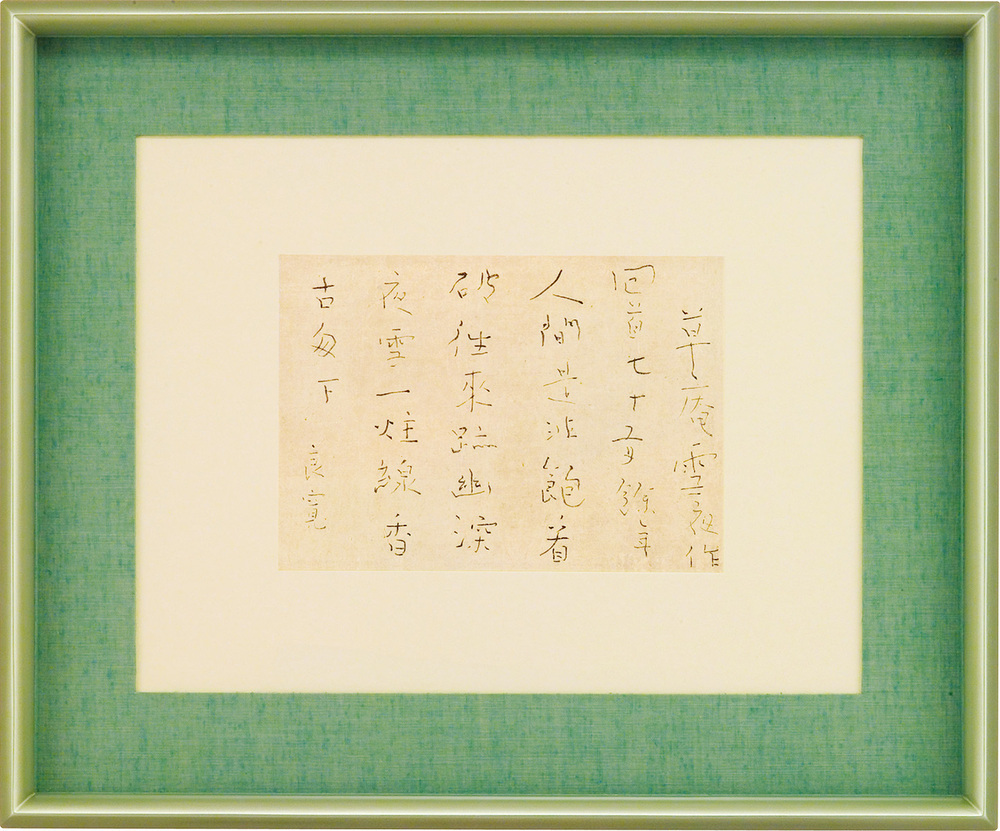 草庵雪夜作
回首七十有餘年
人間是非飽看
破往來跡幽深
夜雪一炷線香
古匆下 良寛